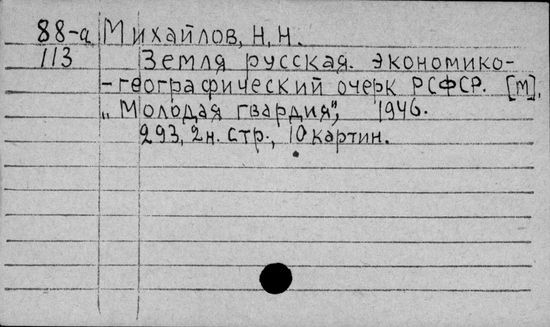 88-а Михайлов, Н.Н.
113 Земля русская. Экономико-
-географический очерк РСФСР. [М],
„Молодая гвардия", 1946.
293, 2н. стр., 10 картин.